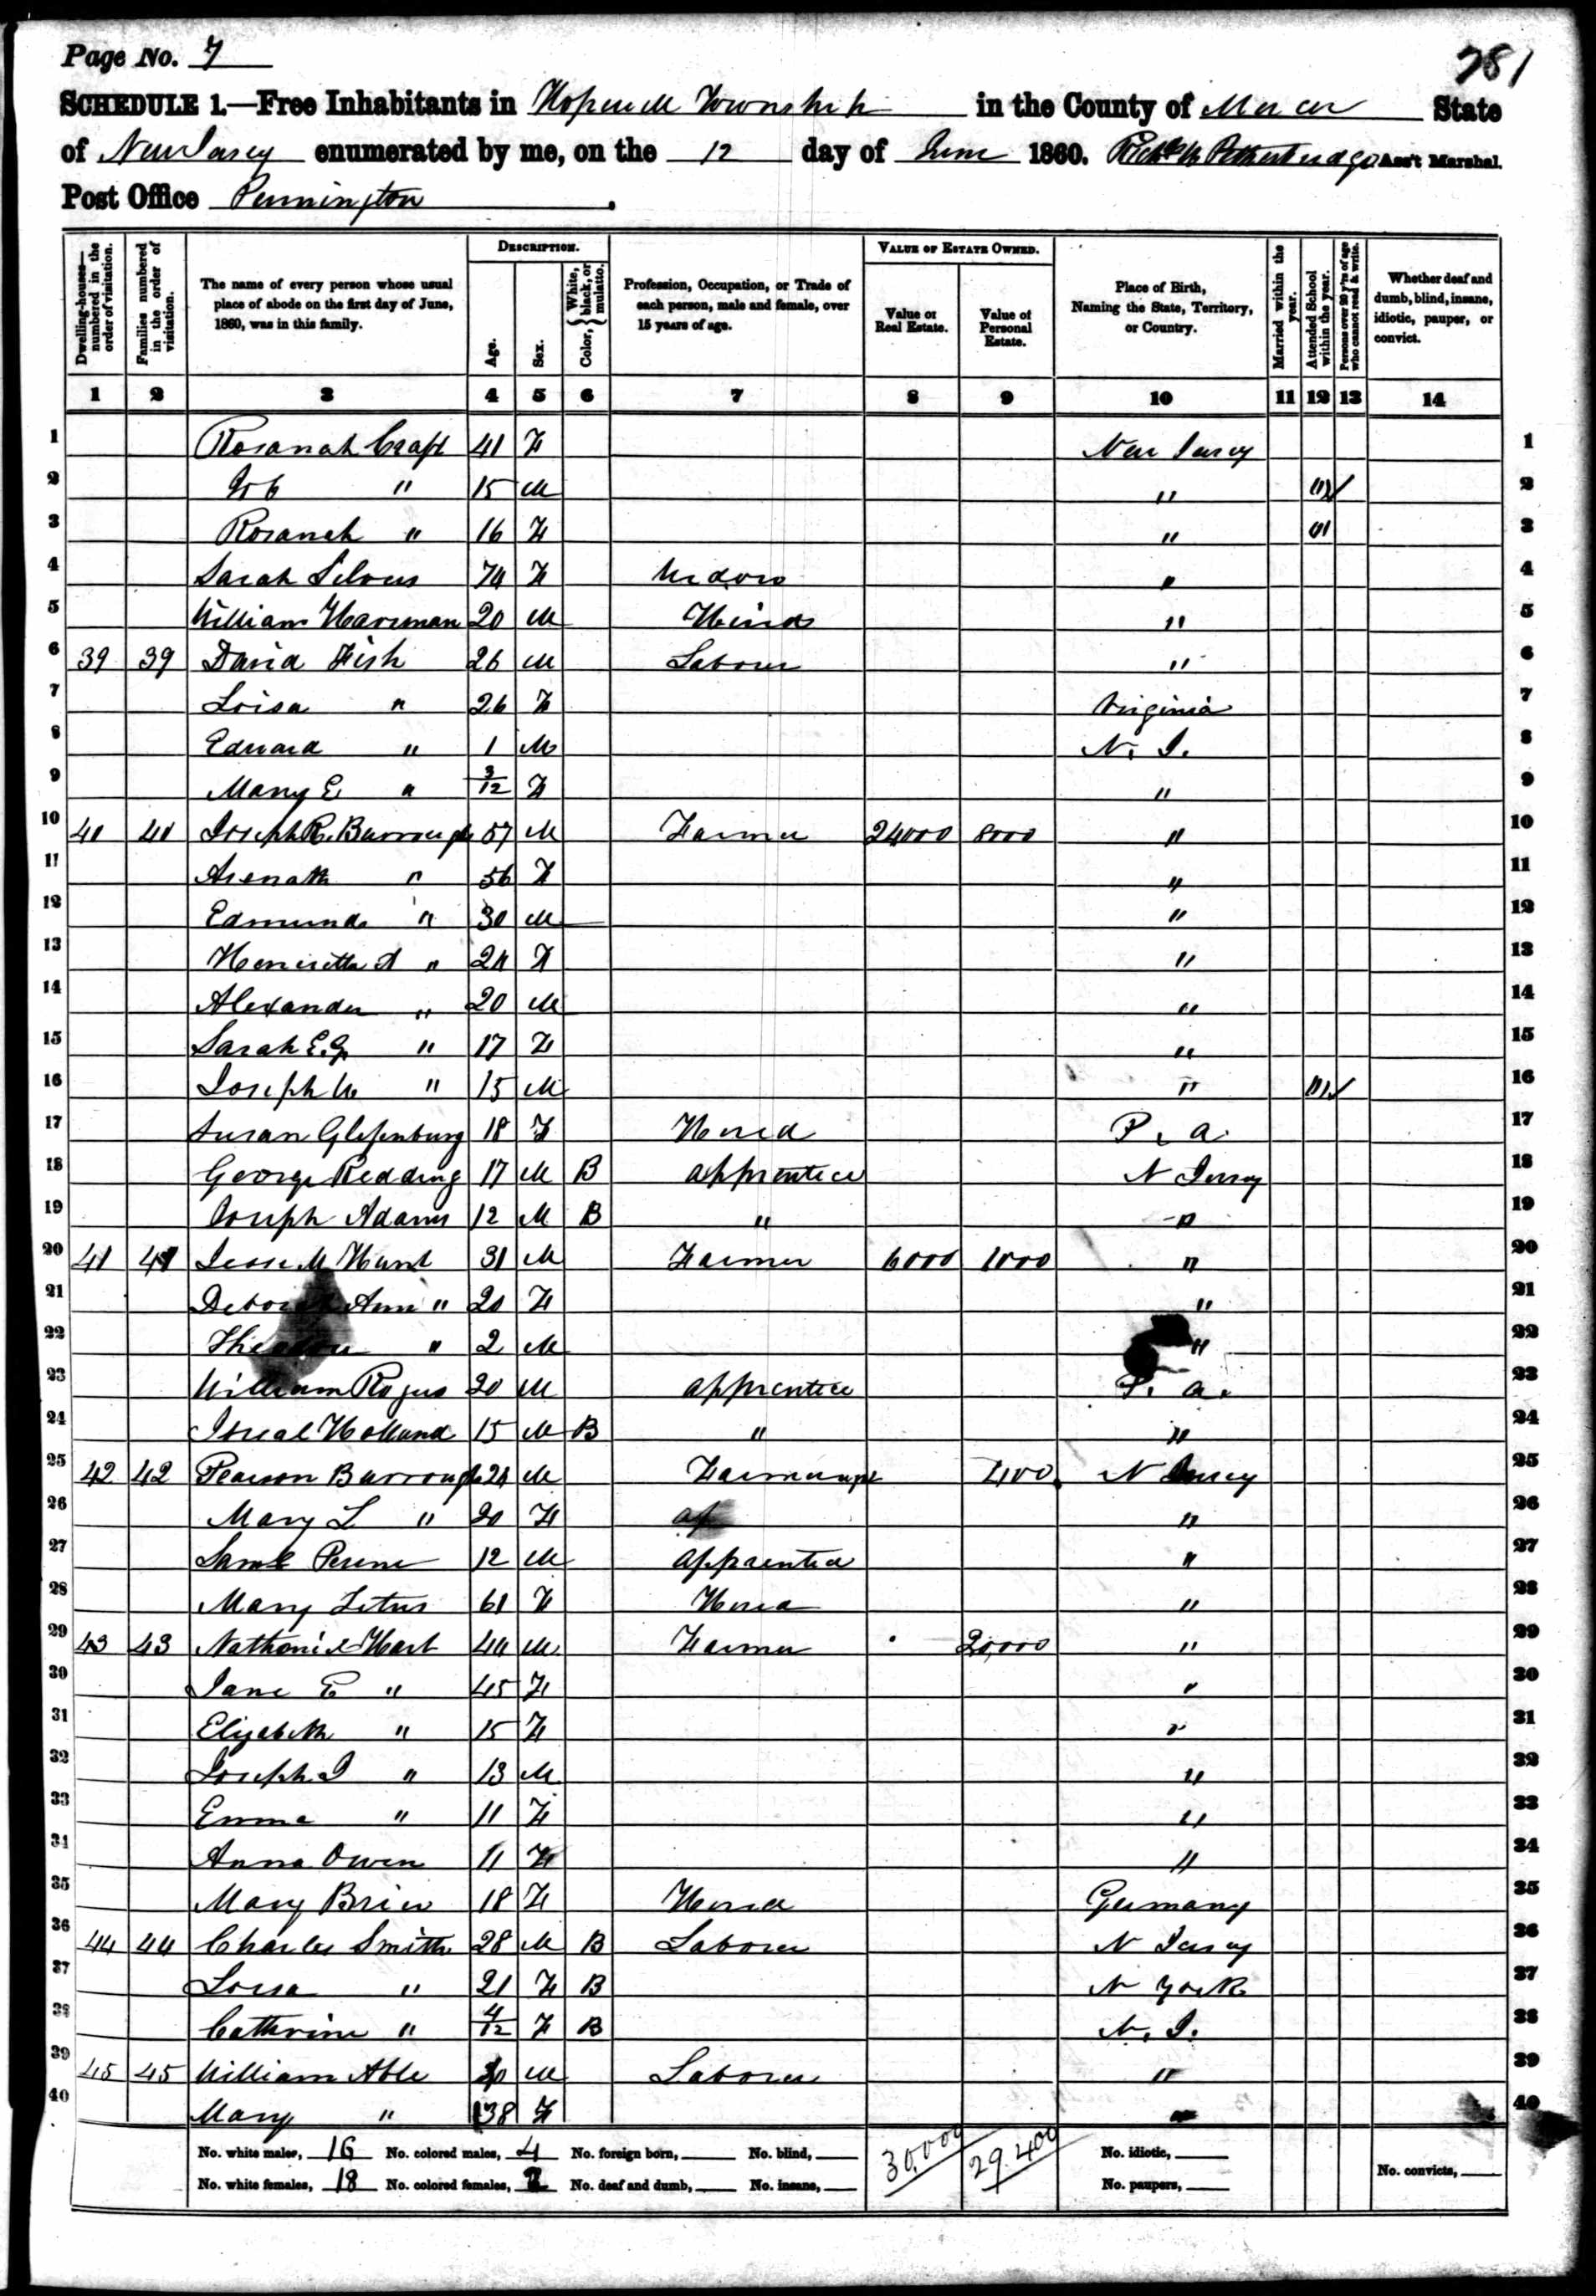 Page No. 7
781
SCHEDULE 1.—Free Inhabitants in Hopewell Township in the County of Mercer State
of New Jersey enumerated by me, on the 12 day of June 1860. Ass't Marshal.
Post Office Pennington.
Dwelling-houses—numbered in the order of visitation.
Families numbered in the order of visitation.
The name of every person whose usual place of abode on the first day of June, 1860, was in this family.
DESCRIPTION.
Age.
Sex.
Color, { White, black, or mulatto.
Profession, Occupation, or Trade of each person, male and female, over 15 years of age.
VALUE OF ESTATE OWNED.
Value of Real Estate.
Value of Personal Estate.
Place of Birth, Naming the State, Territory, or Country.
Married within the year.
Attended School within the year.
Persons over 20 y'rs of age who cannot read & write.
Whether deaf and dumb, blind, insane, idiotic, pauper, or convict.
1 2 3 4 5 6 7 8 9 10 11 12 13 14
1 Rosanah Craft 41 F New Jersey 1
2 " 15 M " " / 2
3 Rosanah " 16 F " " 3
4 Sarah 74 F " 4
5 William Harriman 20 M " 5
6 39 39 David Fish 26 M Laborer " 6
7 Loisa " 26 F Virginia 7
8 Edward " 1 M N. J. 8
9 Mary E " 3/12 F " 9
10 40 40 Joseph R. Burroughs 57 M Farmer 24000 8000 " 10
11 Asenath " 56 F " 11
12 Edmund " 30 M " 12
13 Henrietta A " 24 F " 13
14 Alexander " 20 M " 14
15 Sarah E. G. " 17 F " 15
16 Joseph W " 15 M " " / 16
17 Susan 18 F Hired P. a. 17
18 George Redding 17 M B apprentice N Jersey 18
19 Joseph Adams 12 M B " " 19
20 41 41 Jesse M Hunt 31 M Farmer 6000 1000 " 20
21 Deborah Ann " 20 F " 21
22 Theodore " 2 M " 22
23 William Rogers 20 M apprentice P. a. 23
24 Holland 15 M B " " 24
25 42 42 Pearson Burroughs 24 M Farmer 400 N Jersey 25
26 Mary L " 20 F ap " 26
27 Saml Perine 12 M apprentice " 27
28 Mary Titus 61 F Hired " 28
29 43 43 Nathaniel Hart 44 M Farmer 20,000 " 29
30 Jane E " 45 F " 30
31 Elizabeth " 15 F " 31
32 Joseph J " 13 M " 32
33 Emma " 11 F " 33
34 Anna Owen 11 F " 34
35 Mary 18 F Hired Germany 35
36 44 44 Charles Smith 28 M B Laborer N Jersey 36
37 Loisa " 21 F B N York 37
38 Cathrine " 4/12 F B N. J. 38
39 45 45 William Able M Laborer " 39
40 Mary " 38 F " 40
No. white males, 16 No. colored males, 4 No. foreign born, No. blind, 30,000 29.400 No. idiotic,
No. white females, 18 No. colored females, 2 No. deaf and dumb, No. insane, No. paupers, No. convicts,